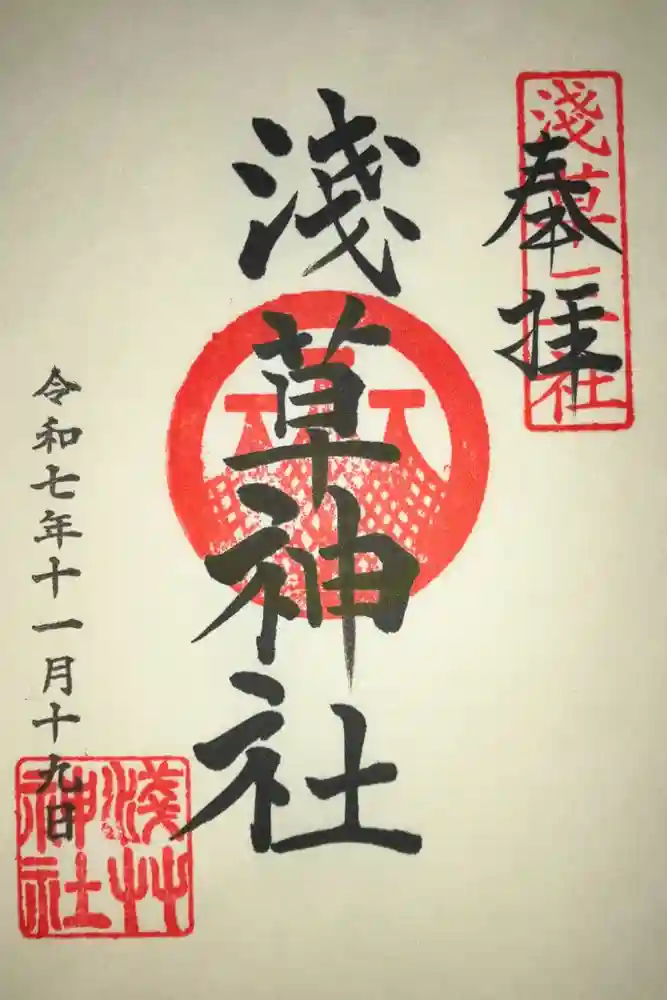 奉拝
淺草神社
淺草神社
令和七年十一月十九日
淺艸神社